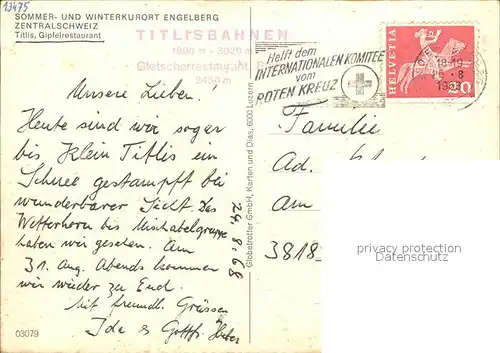 13475
SOMMER- UND WINTERKURORT ENGELBERG
ZENTRALSCHWEIZ
Titlis, Gipfelrestaurant
TITLISBAHNEN
1800 m - 3020 m
Gletscherrestaurant
2450 m
Helft dem
INTERNATIONALEN KOMITEE
vom
ROTEN KREUZ
HELVETIA
18-19
1968
Unsere Lieben!
Heute sind wir sogar
bis Klein Titlis im
Schnee gestampft bei
wunderbarer Sicht. Das
Wetterhorn bis Mischabelgruppe
haben wir gesehen. Am
31. Aug. Abends kommen
wir wieder zu Euch.
Mit freundl. Grüssen
Ida & Gottfr. Huber
24.8.68
03079
Globetrotter GmbH, Karten und Dias, 6000 Luzern
Familie
Ad.
Am
3818-
Persönliche Daten
Datenschutz